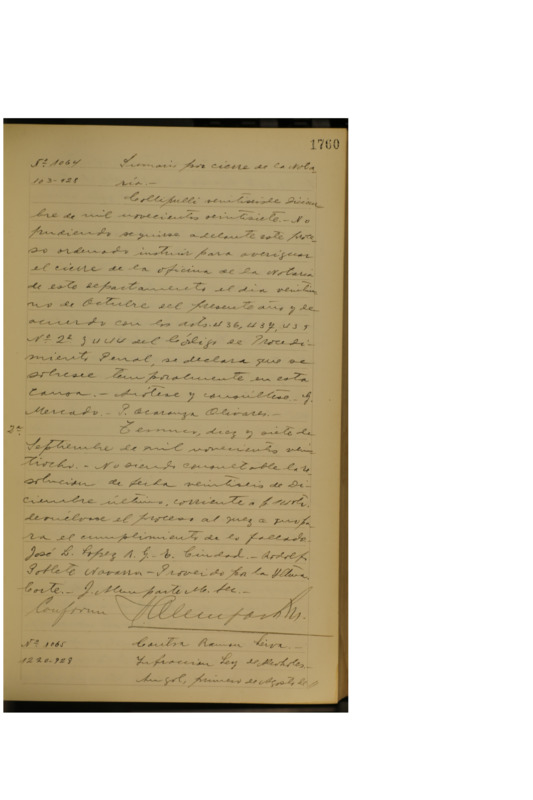 1760
Nº 1064 Sumario por cierre de la Nota
103-928 ría.-
Collipulli veintiseis de Diciem
bre de mil novecientos veintisiete.- No
pudiendo seguirse adelante este proce-
so ordenado instruir para averiguar
el cierre de la oficina de la Notaria
de este departamento el día veintiu
no de Octubre del presente año y de
acuerdo con los arts. 436, 437, 439
Nº 2º y 444 del Código de Procedi-
miento Penal, se declara que se
sobresee temporalmente en esta
causa.- Anótese y consúltese.- G.
Mercado.- P. Ocaranza Olivares.-
2ª. Temuco, diez y siete de
Septiembre de mil novecientos vein
tiocho.- No siendo consultable la re
solucion de fecha veintiseis de Di-
ciembre último, corriente a f
devuélvase el proceso al juez a quo pa
ra el cumplimiento de lo fallado.
José D. Lopez A. G. Ciudad.- Rodolfo
Poblete Navarro.- Proveido por la Iltma
Corte.- J. Sec.-
Conforme
Nº 1065 Contra Ramon Leiva.-
1220-928 Infraccion Ley de Alcoholes.-
Angol, primero de Agosto de